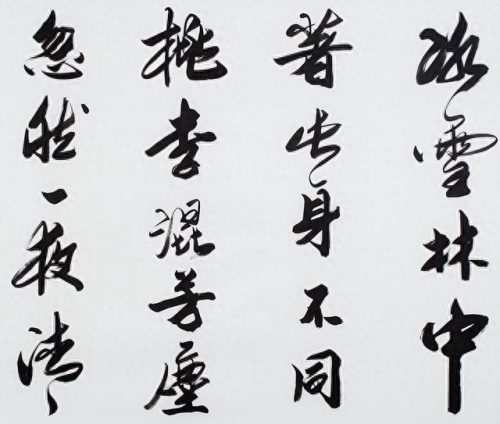 冰雪林中
著此身不同
桃李混芳塵
忽然一夜清